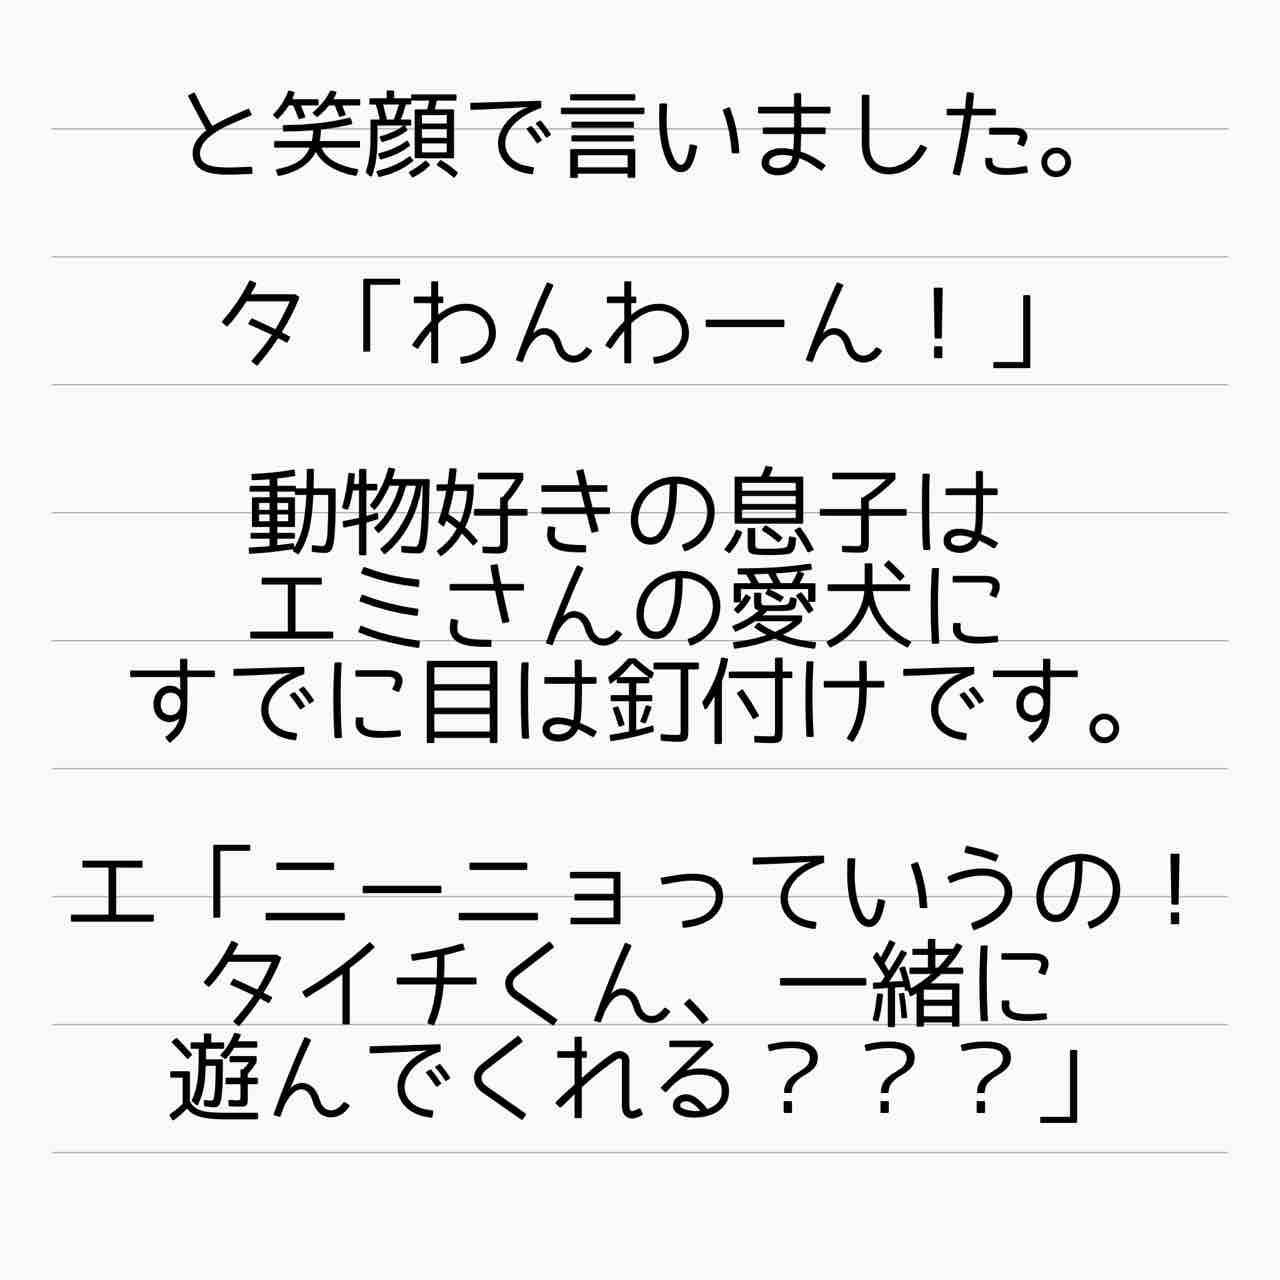 と笑顔で言いました。
タ「わんわーん！」
動物好きの息子は
エミさんの愛犬に
すでに目は釘付けです。
エ「ニーニョっていうの！
タイチくん、一緒に
遊んでくれる？？？」